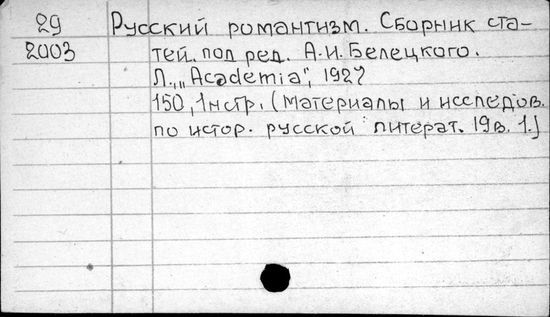 29 Русский романтизм. Сборник ста-
2003 тей под ред. А.И. Белецкого.
Л., „Academia", 1927
150, 1нстр. (Материалы и исследов.
по истор. русской литерат. 19в. 1.)